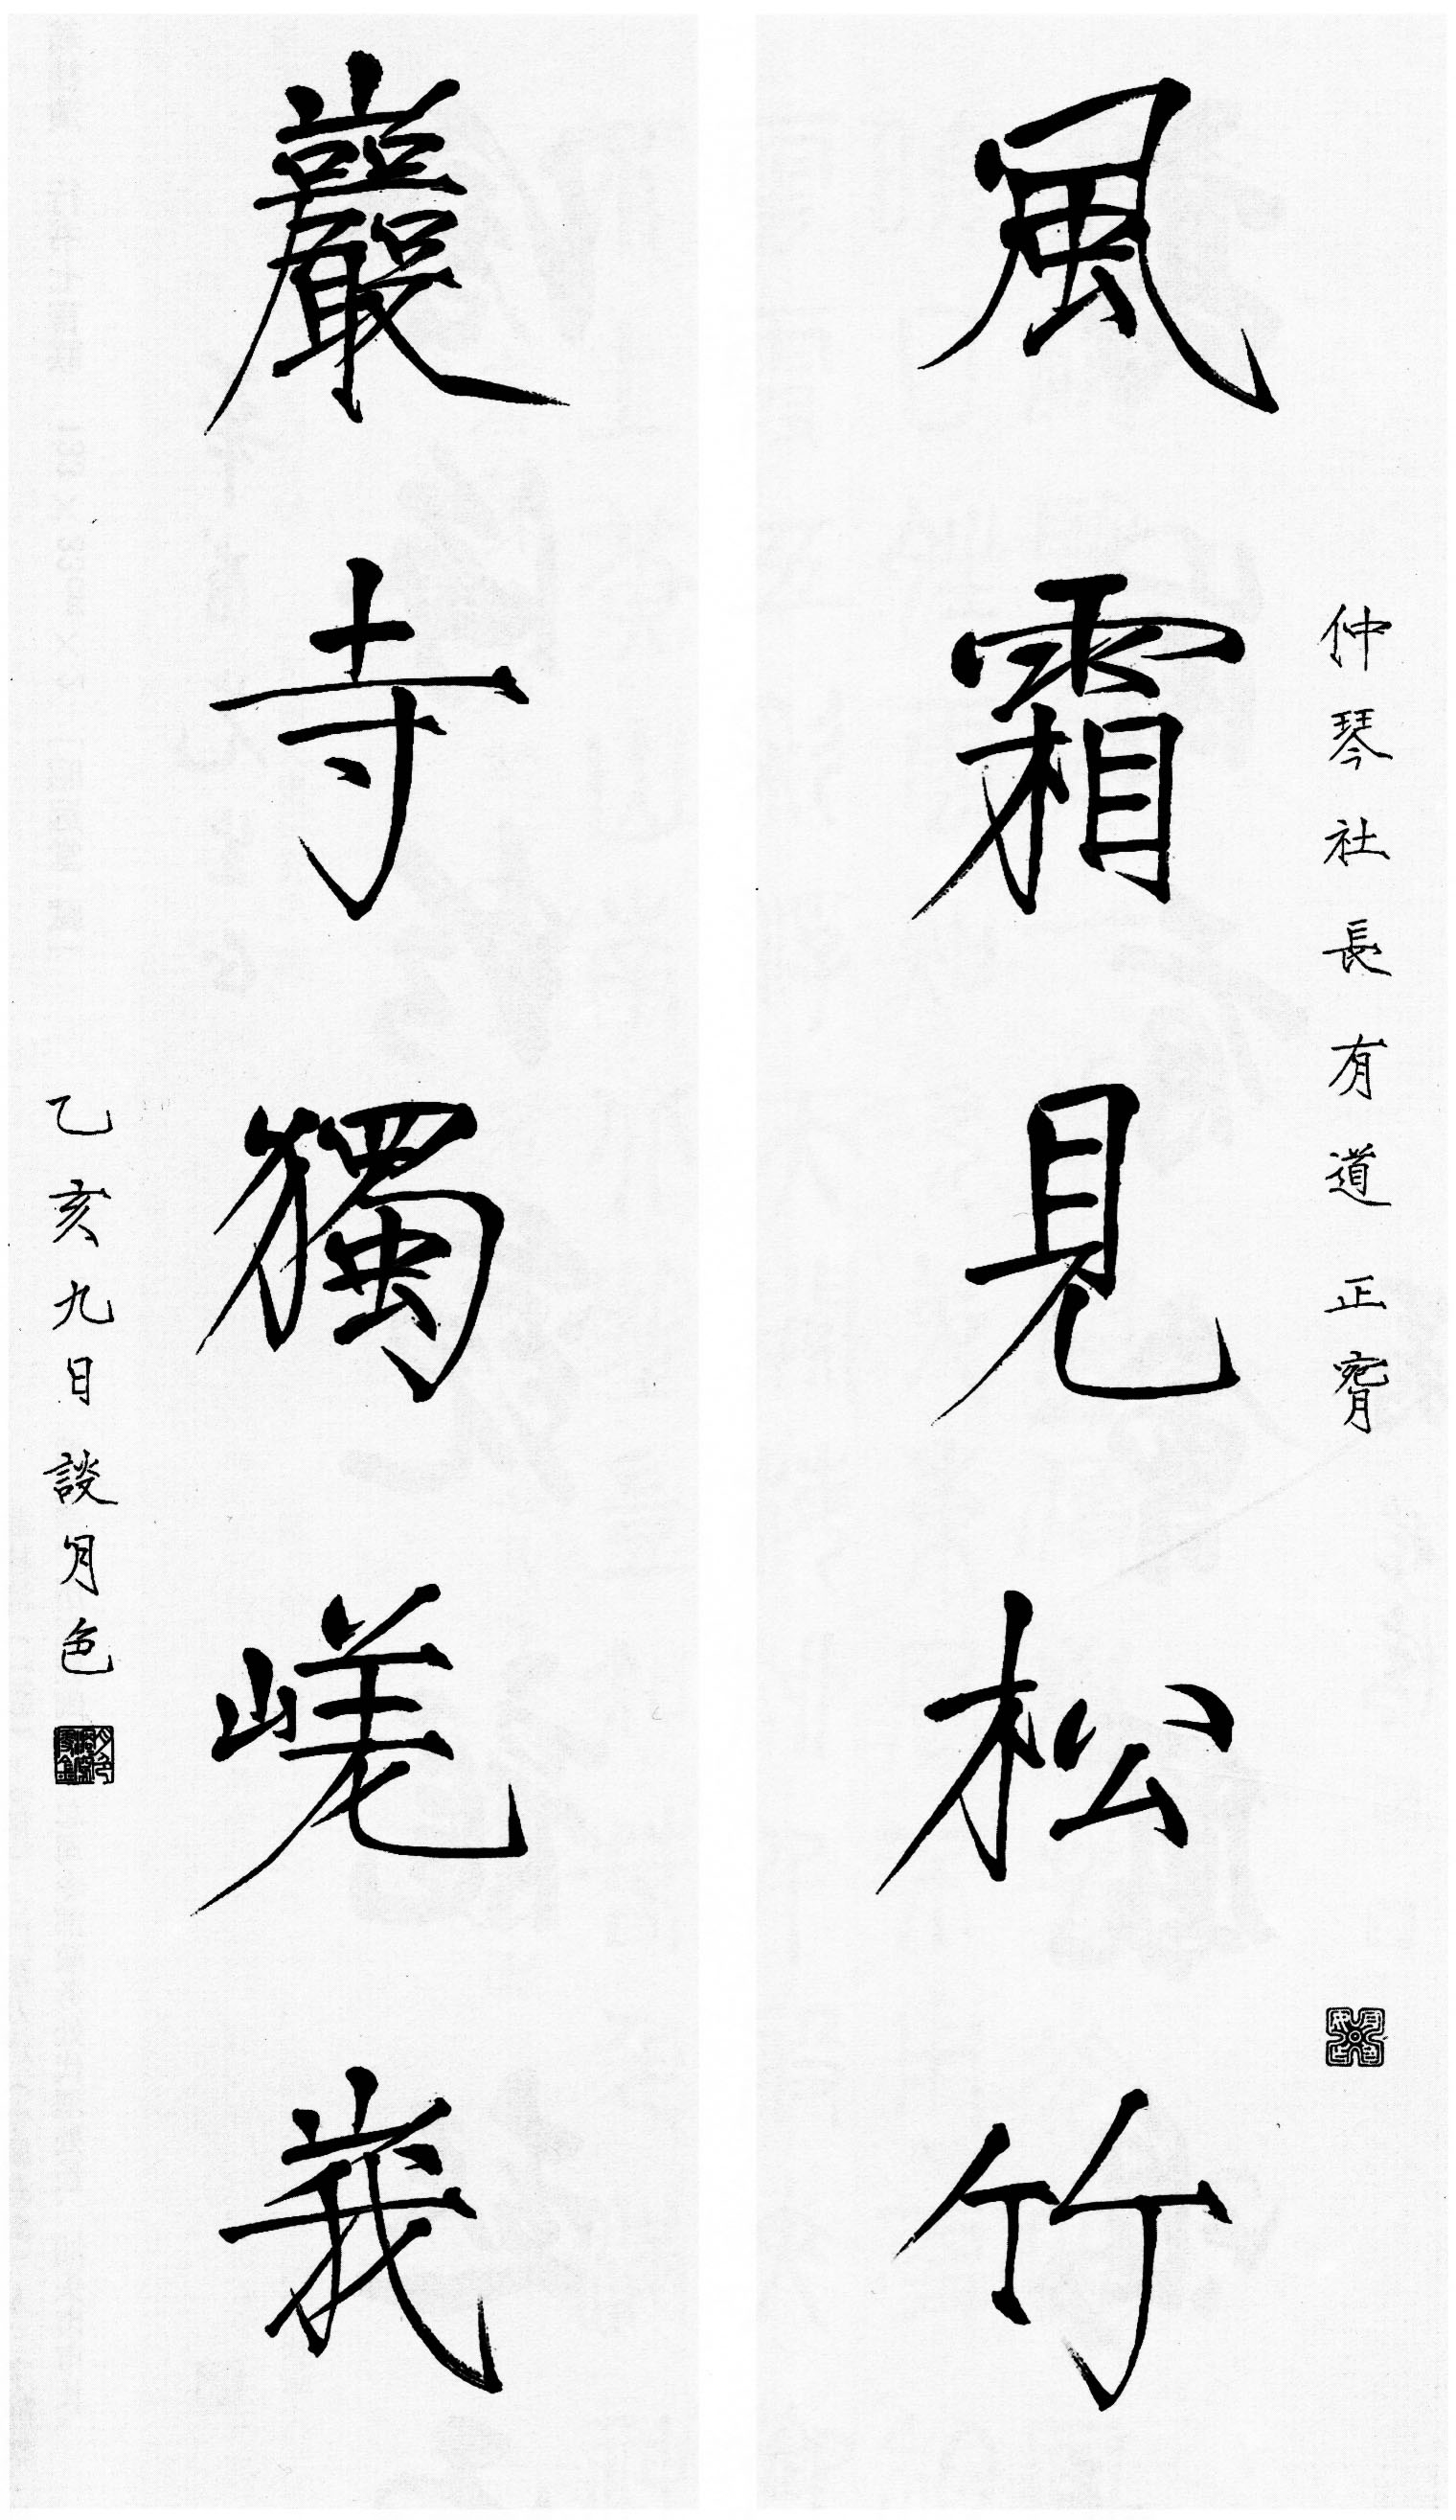 仲琴社長有道正臋
風霜見松竹
巖寺獨嵯峨
乙亥九日談月色